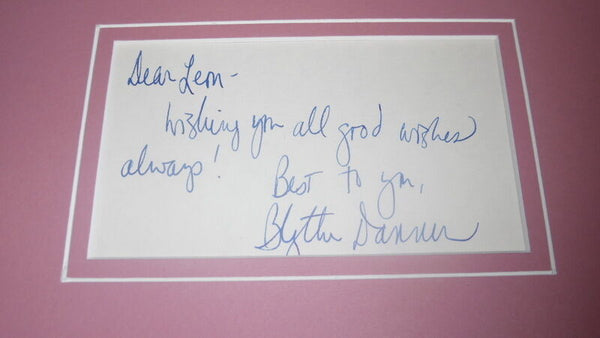 Dear Leon-
Wishing you all good wishes
always!
Best to you,
Blythe Danner